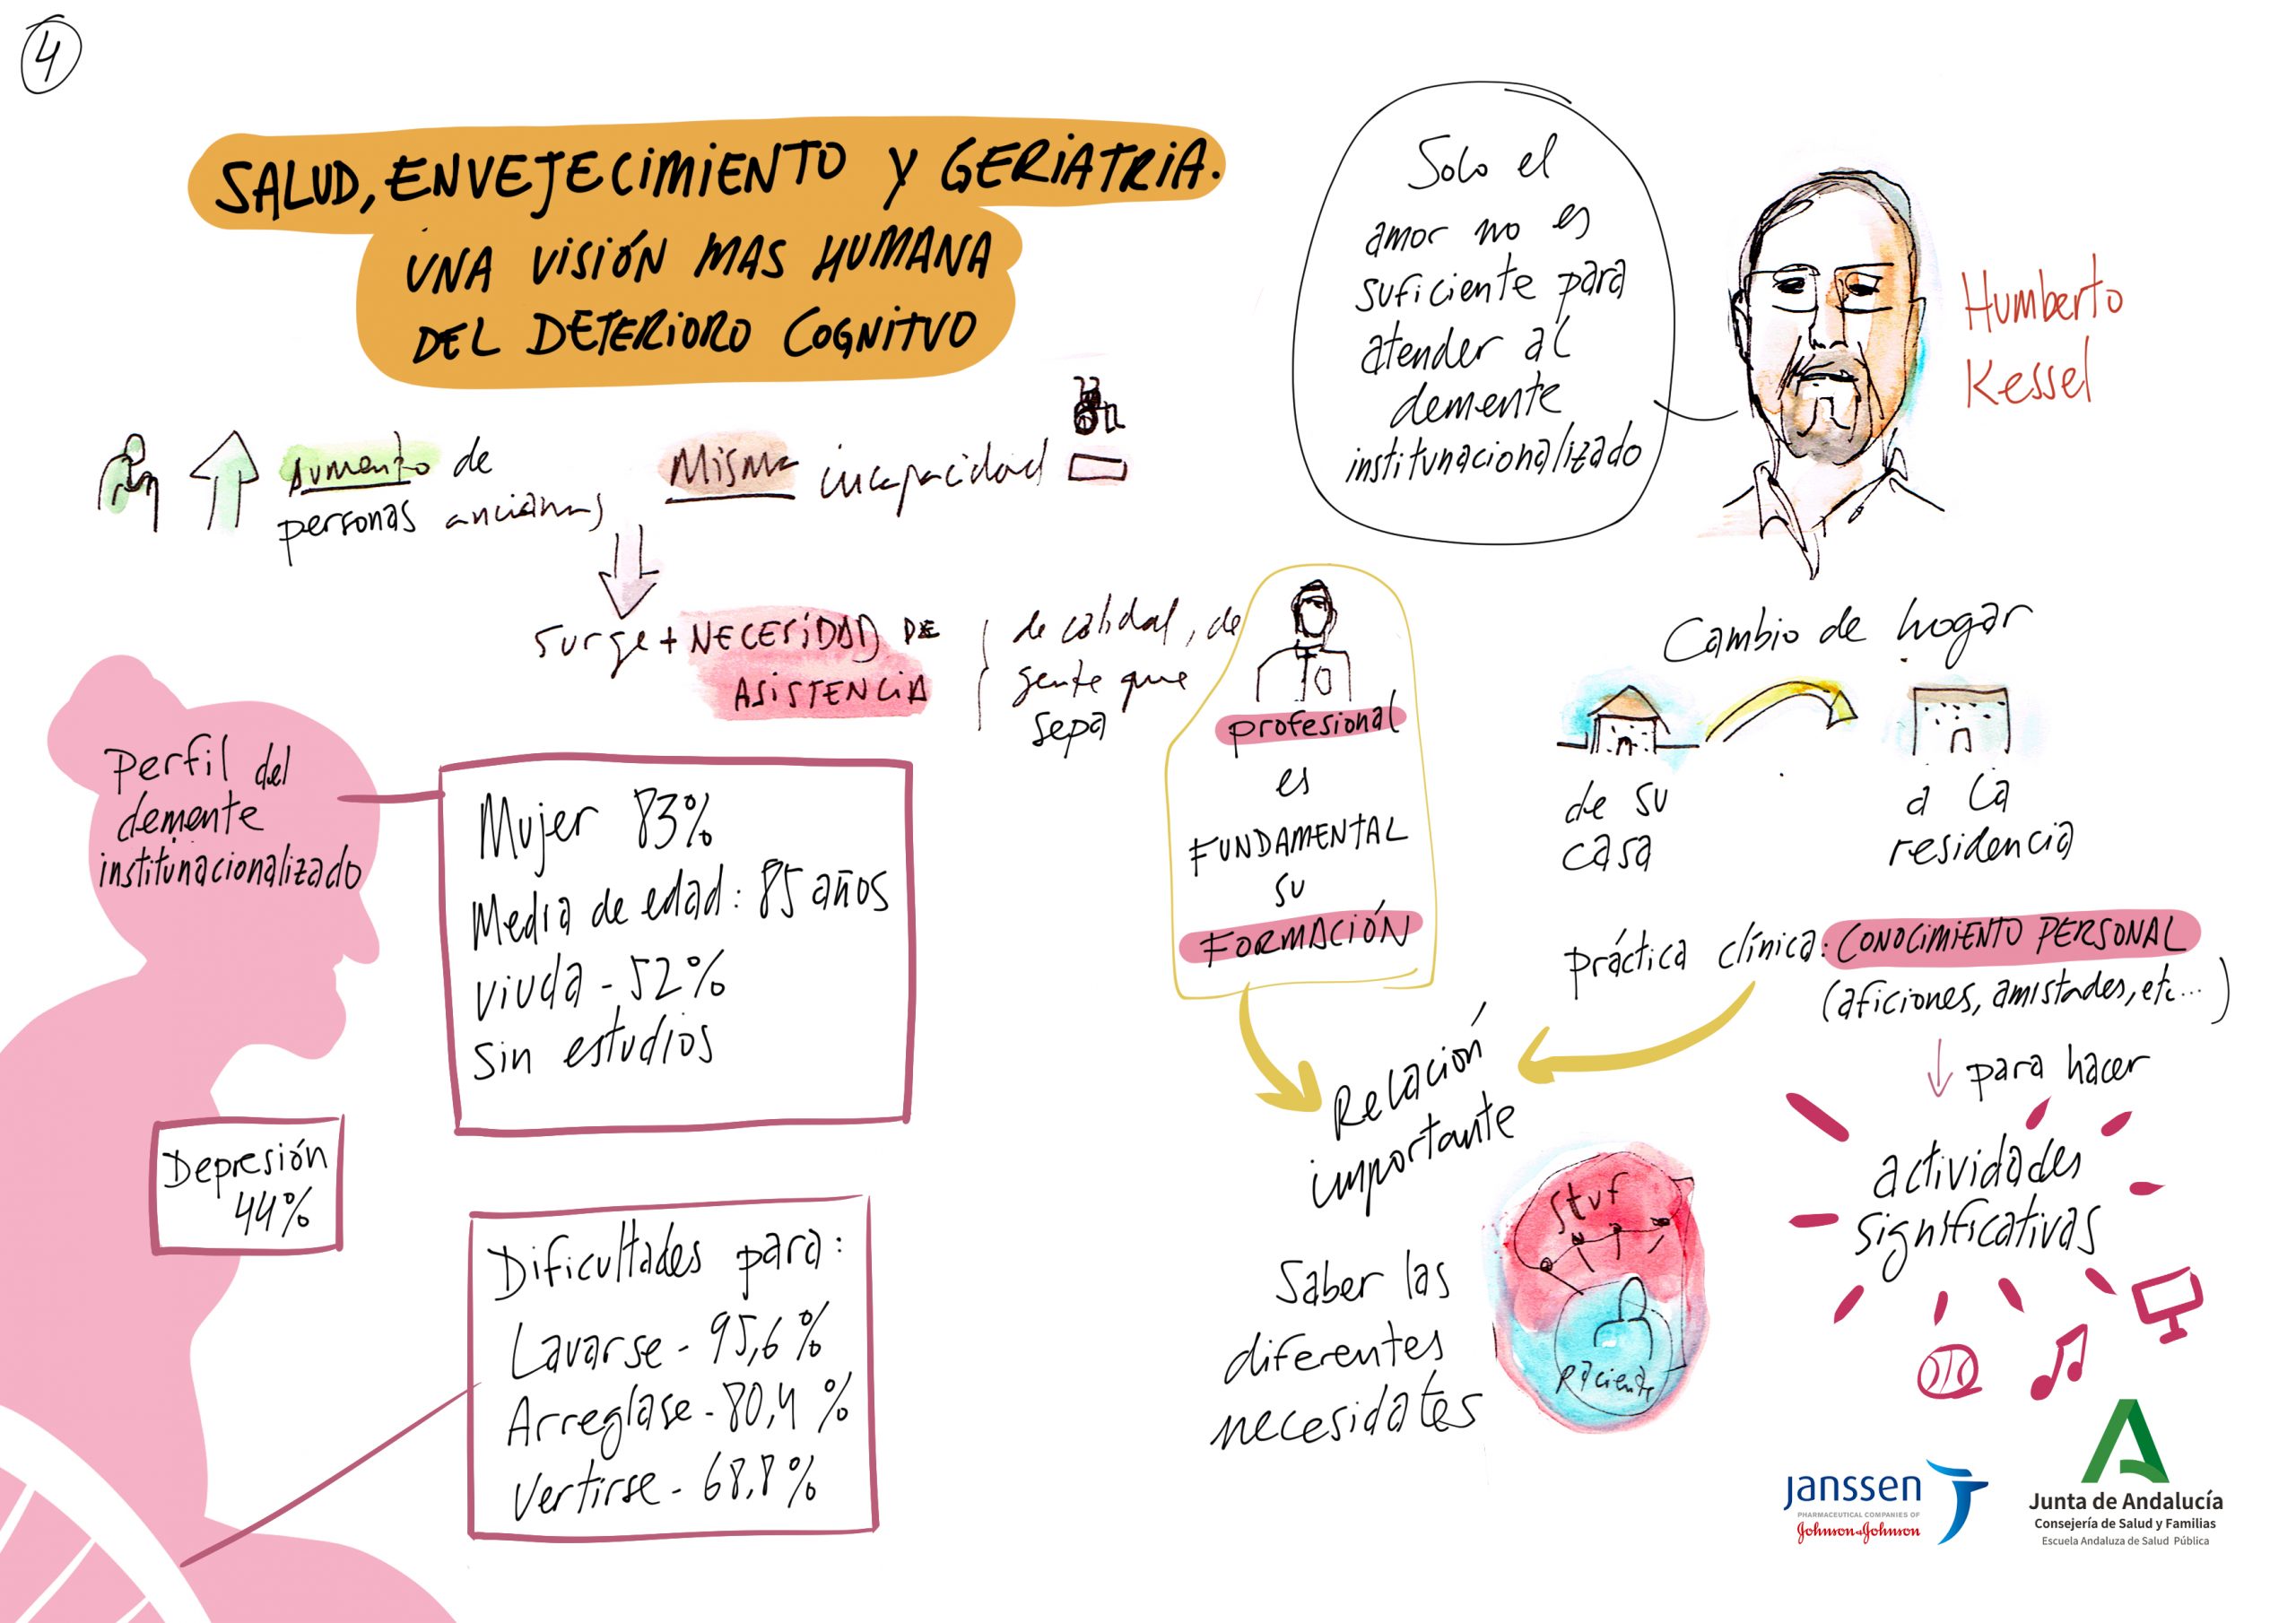 4
SALUD, ENVEJECIMIENTO Y GERIATRIA.
UNA VISIÓN MAS HUMANA
DEL DETERIORO COGNITVO
Solo el
amor no es
suficiente para
atender al
demente
institunacionalizado
Humberto
Kessel
Aumento de
personas ancianas
Misma incapacidad
Surge + NECESIDAD DE
ASISTENCIA
de calidad, de
gente que
sepa
profesional
es
FUNDAMENTAL
SU
FORMACIÓN
Cambio de hogar
de su
casa
a la
residencia
Perfil del
demente
institunacionalizado
Mujer 83%
Media de edad: 85 años
viuda - 52%
Sin estudios
Depresión
44%
Dificultades para:
Lavarse - 95,6 %
Arreglase - 80,4 %
Vertirse - 68,8 %
práctica clínica: CONOCIMIENTO PERSONAL
(aficiones, amistades, etc...)
para hacer
actividades
significativas
Relación
importante
Stuf
Paciente
Saber las
diferentes
necesidates
janssen
PHARMACEUTICAL COMPANIES OF
Johnson & Johnson
Junta de Andalucía
Consejería de Salud y Familias
Escuela Andaluza de Salud Pública